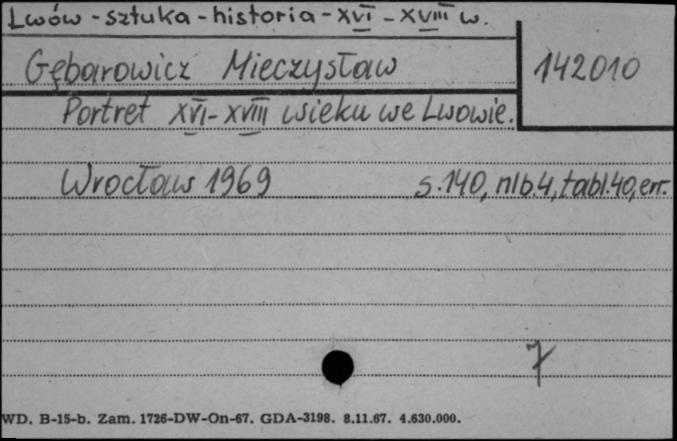 Lwów - sztuka - historia - XVI - XVIII w.
Gębarowicz Mieczysław
142010
Portret XVI - XVIII wieku we Lwowie.
Wrocław 1969 s. 140, nlb. 4, tabl. 40, err.
7
WD. B-15-b. Zam. 1726-DW-On-67. GDA-3198. 8.11.67. 4.630.000.